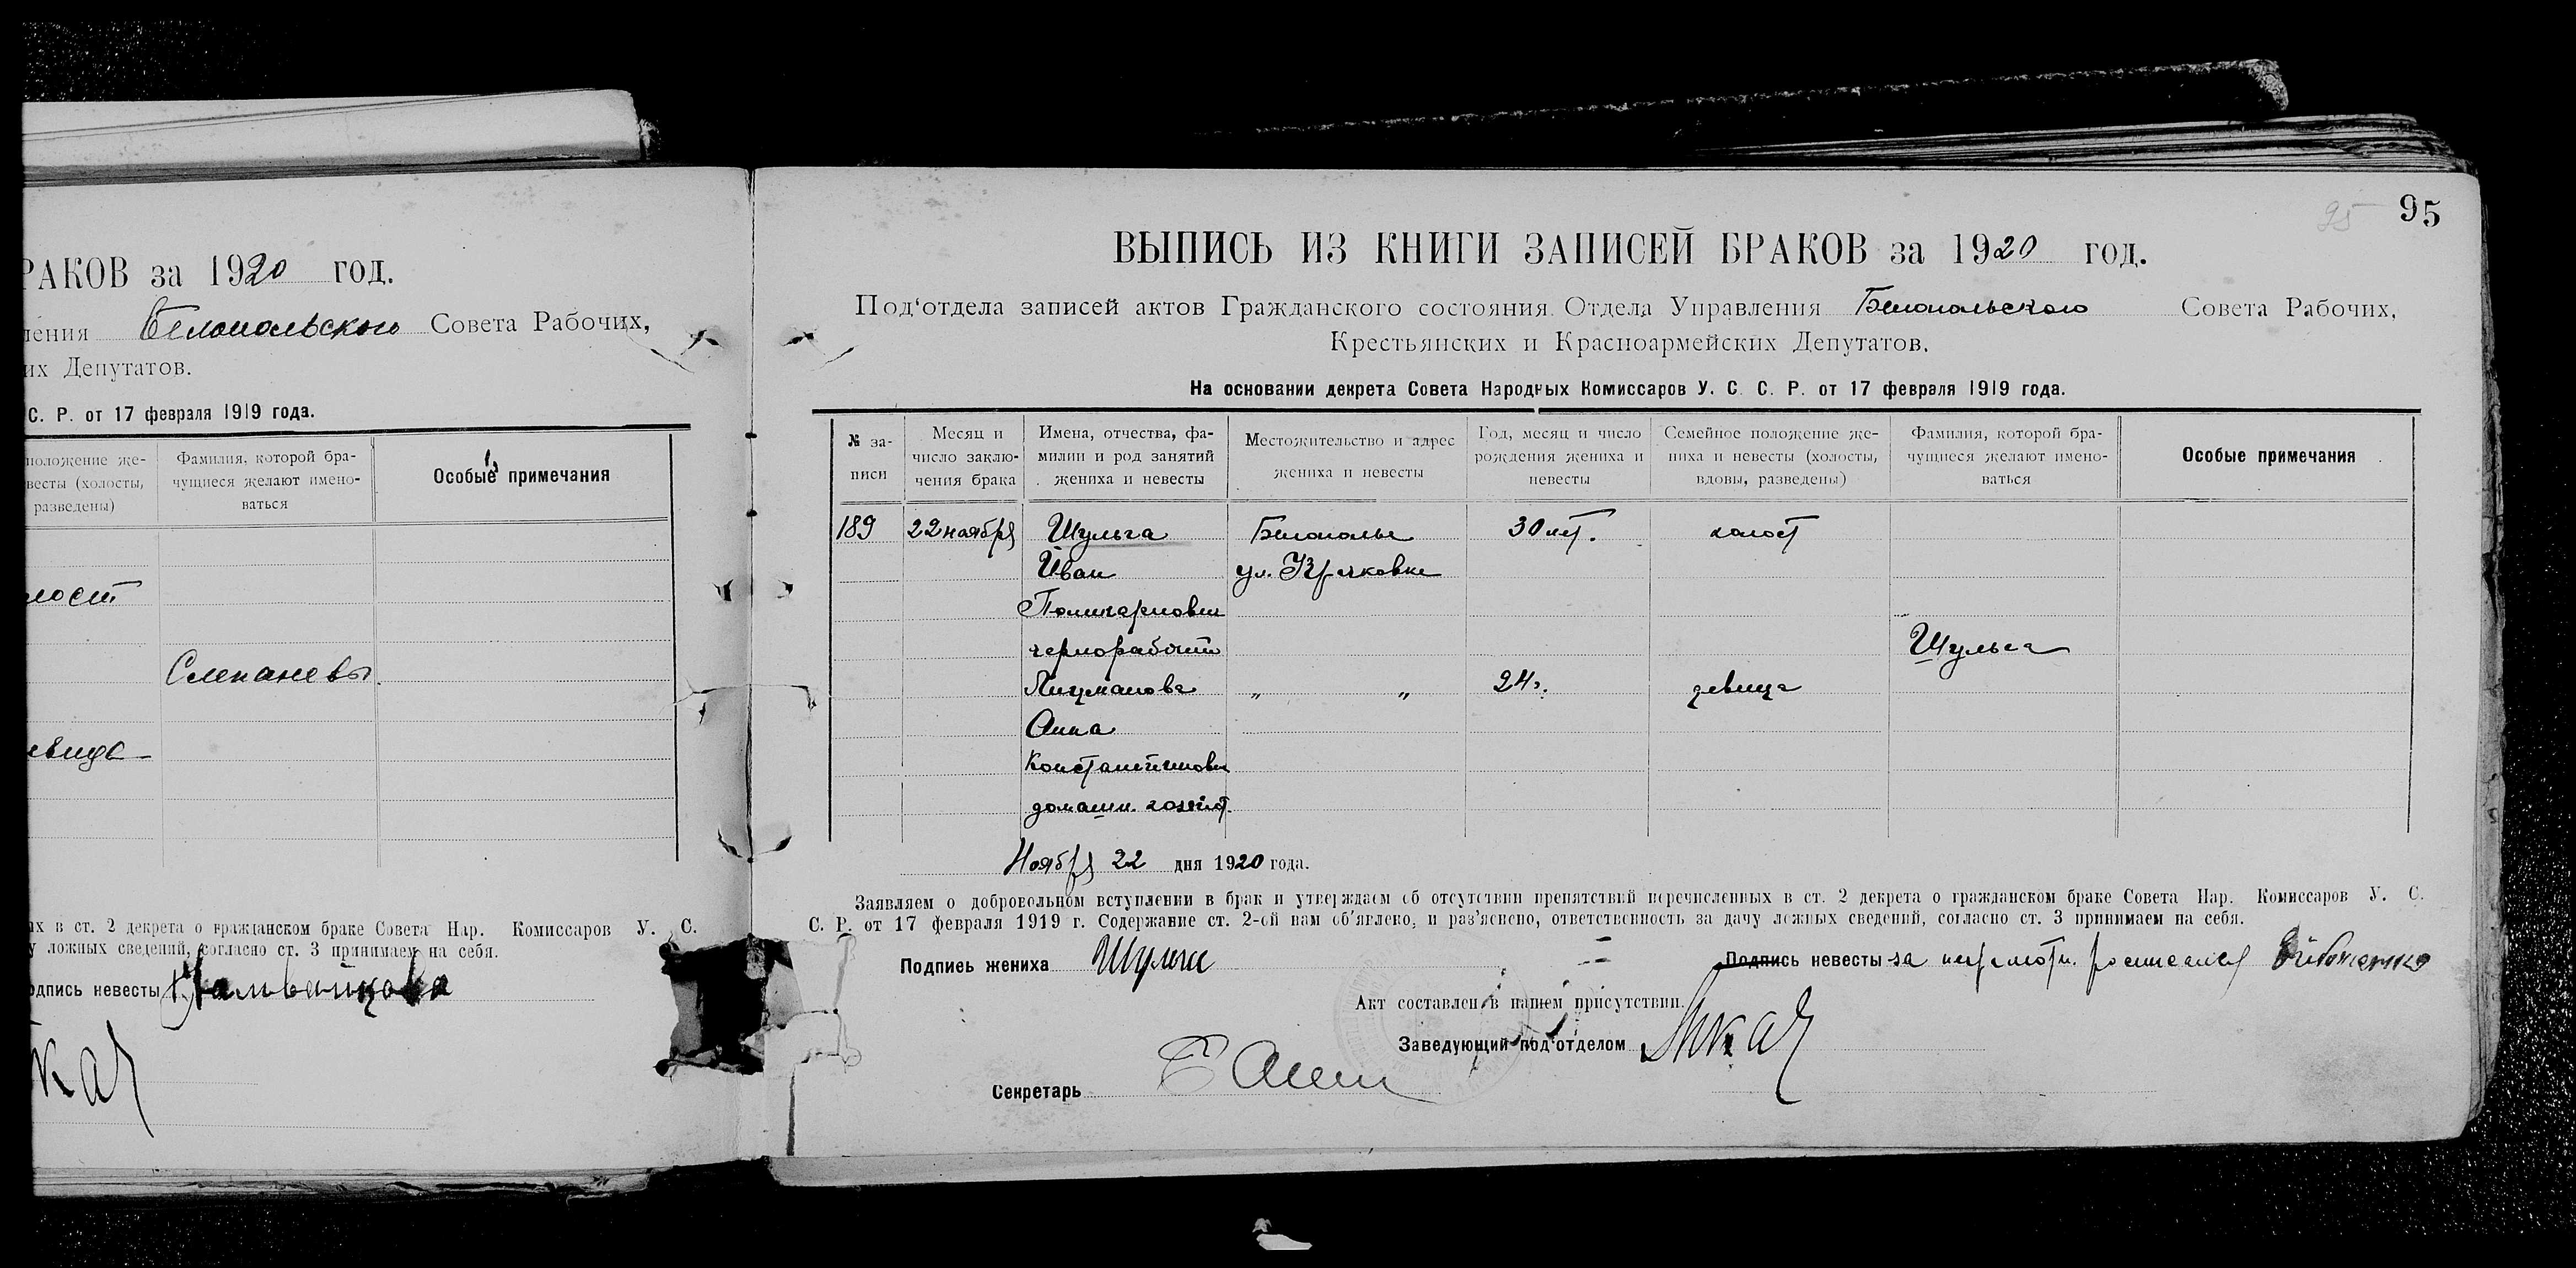 РАКОВ за 1920 год.
ления Белопольского Совета Рабочих,
их Депутатов.
С. Р. от 17 февраля 1919 года.
положение же-
весты (холосты,
разведены)
Фамилия, которой бра-
чущиеся желают имено-
ваться
Особые примечания
лост
Слепаневы
евица
ых в ст. 2 декрета о гражданском браке Совета Нар. Комиссаров У. С.
у ложных сведений, согласно ст. 3 принимаем на себя.
одпись невесты
95
95
ВЫПИСЬ ИЗ КНИГИ ЗАПИСЕЙ БРАКОВ за 1920 год.
Под‘отдела записей актов Гражданского состояния Отдела Управления Белопольского Совета Рабочих,
Крестьянских и Красноармейских Депутатов.
На основании декрета Совета Народных Комиссаров У. С. С. Р. от 17 февраля 1919 года.
№ за-
писи
Месяц и
число заклю-
чения брака
Имена, отчества, фа-
милии и род занятий
жениха и невесты
Местожительство и адрес
жениха и невесты
Год, месяц и число
рождения жениха и
невесты
Семейное положение же-
ниха и невесты (холосты,
вдовы, разведены)
Фамилия, которой бра-
чущиеся желают имено-
ваться
Особые примечания
189 22 ноября Шульга Белополье 30 лет. холост
Иван ул.
Поликарпович
чернорабочий Шульга
" " 24 ". девица
Анна
Константиновн
домашн. хозяйст.
Ноября 22 дня 1920 года.
Заявляем о добровольном вступлении в брак и утверждаем об отсутствии препятствий перечисленных в ст. 2 декрета о гражданском браке Совета Нар. Комиссаров У. С.
С. Р. от 17 февраля 1919 г. Содержание ст. 2-ой нам об'явлено, и раз'яснено, ответственность за дачу ложных сведений, согласно ст. 3 принимаем на себя.
Подпись жениха Шульга Подпись невесты за неграмотн. росписался
Акт составлен в нашем присутствии.
Заведующий под‘отделом
Секретарь